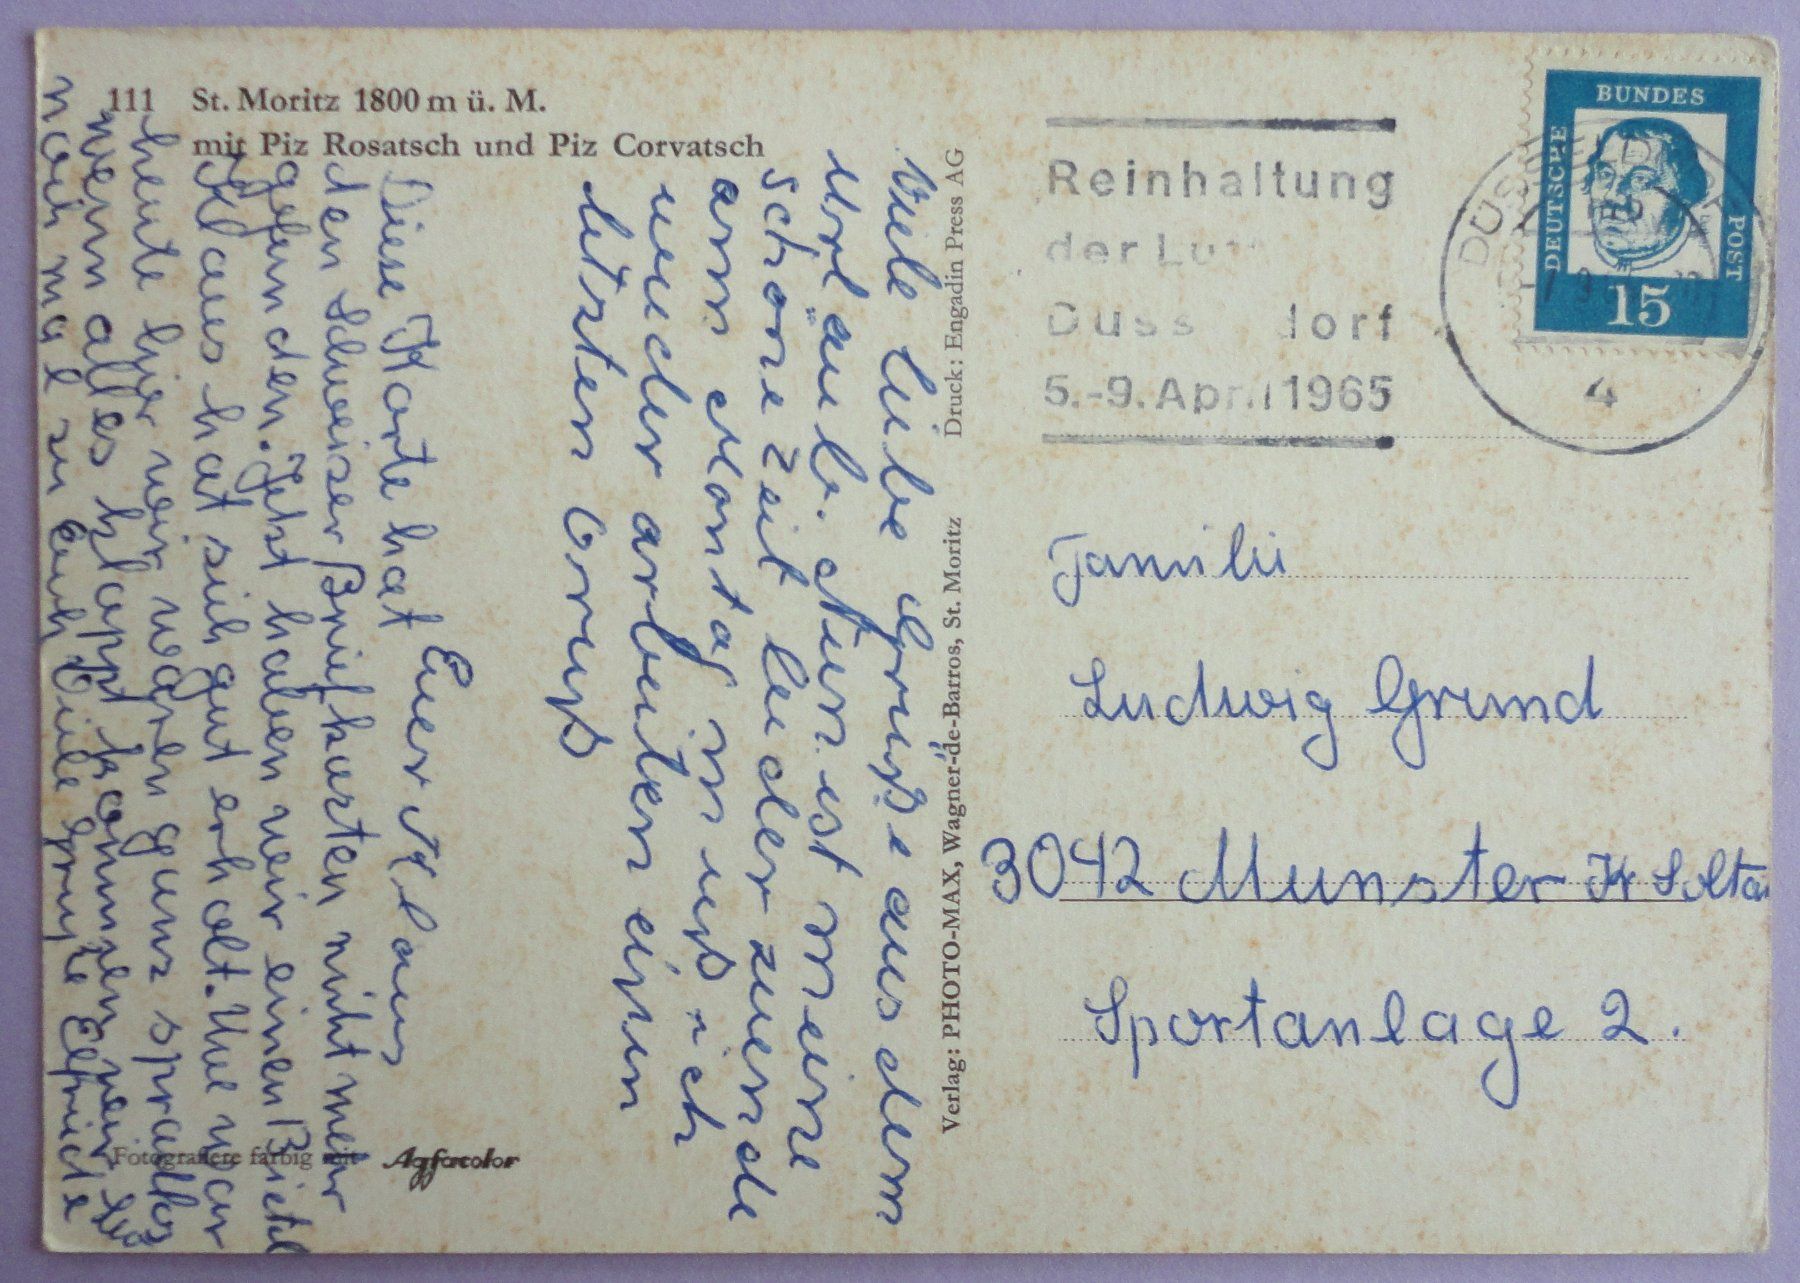 111 St. Moritz 1800 m ü. M.
mit Piz Rosatsch und Piz Corvatsch
Viele liebe Grüße aus dem
Urlaub. Nun ist meine
schöne Zeit leider zuende
am Montag muß ich
wieder arbeiten einen
letzten Gruß
Euer Klaus
Diese Karte hat
den Schweizer Briefkarten nicht mehr
gefunden. Jetzt haben wir einen
Klaus hat sich gut erholt. Uwe war
heute hier wir waren ganz sprachlos
wenn alles klappt kommen wir
noch mal zu Euch Viele Grüße Elfriede
Fotografiere farbig mit Agfacolor
Verlag: PHOTO-MAX, Wagner-de-Barros, St. Moritz Druck: Engadin Press AG
Reinhaltung
der Lu
Düss dorf
5.-9. April 1965
DÜSSELDORF
4
DEUTSCHE BUNDESPOST
15
Familie
Ludwig Grund
3042 Munster Kr Soltau
Sportanlage 2.